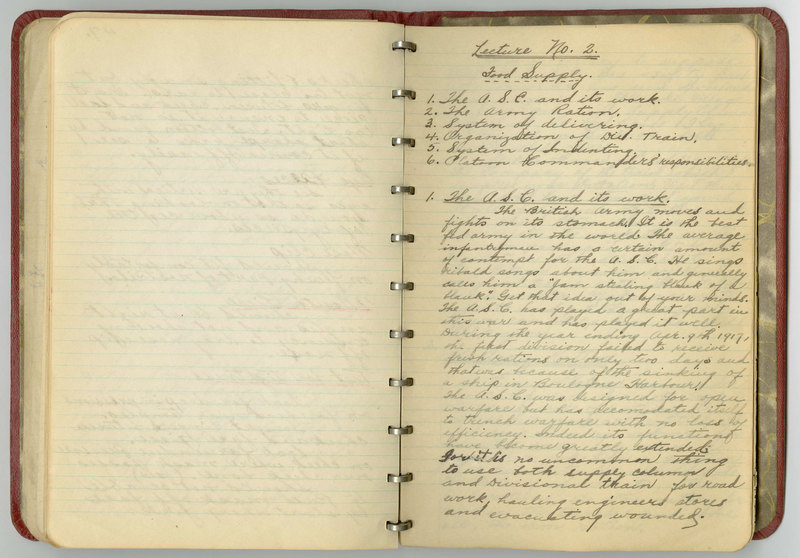 Lecture No. 2.
Food Supply.
1. The A.S.C. and its work.
2. The Army Ration.
3. System of delivering.
4. Organization of Div. Train.
5. System of Indenting.
6. Platoon Commanders responsibilities.
1. The A.S.C. and its work.
The British army moves and
fights on its stomach. It is the best
fed army in the world. The average
infantryman has a certain amount
of contempt for the A.S.C. He sings
ribald songs about him and generally
calls him a "Jam stealing blank of a
blank". Get that idea out of your minds.
The A.S.C. has played a great part in
this war and has played it well.
During the year ending Apr. 9th 1917,
the first division failed to receive
fresh rations on only two days and
that was because of the sinking of
a ship in Boulogne Harbour.
The A.S.C. was designed for open
warfare but has accomodated itself
to trench warfare with no loss of
efficiency. Indeed its functions
have become greatly extended
for it is no uncommon thing
to use both supply column
and Divisional train for road
work, hauling engineers stores
and evacuating wounded.